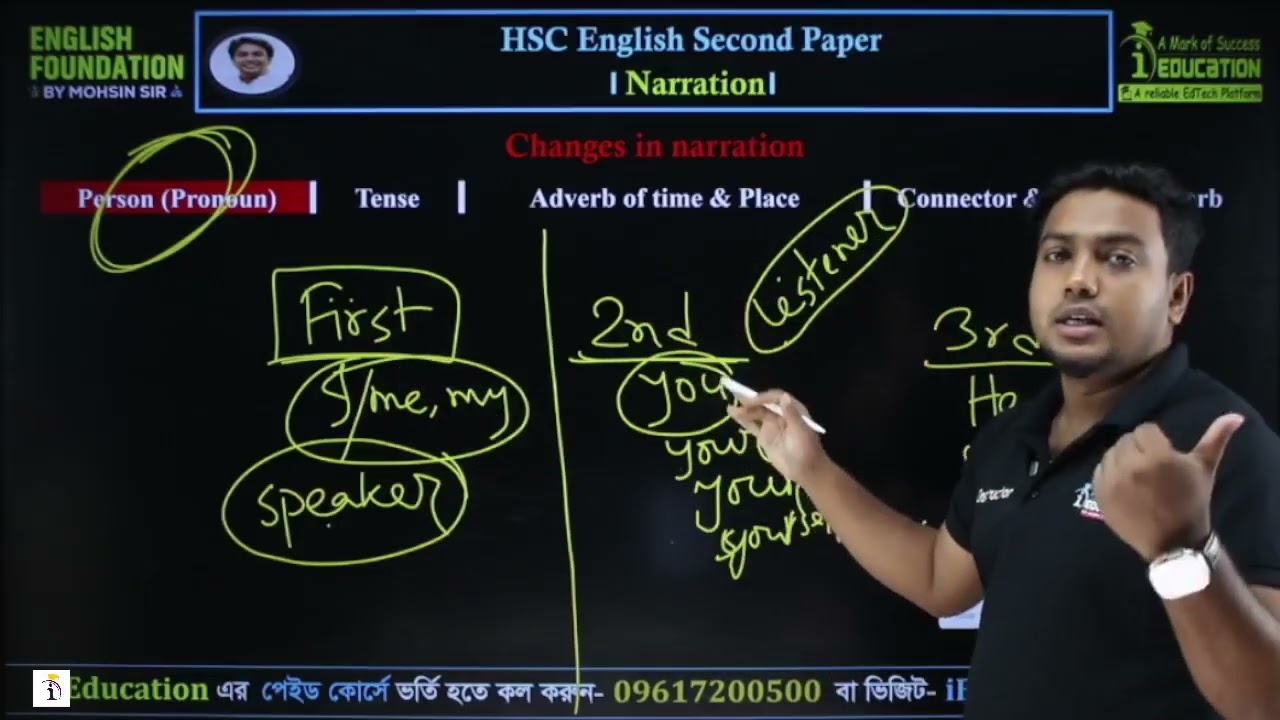 ENGLISH
FOUNDATION
BY MOHSIN SIR
HSC English Second Paper
Narration
A Mark of Success
iEDUCATION
A reliable EdTech Platform
Changes in narration
Person (Pronoun)
Tense
Adverb of time & Place
Connector &
rb
First
I/me, my
speaker
2nd
you
Listener
3rd
He
Instructor
iEducation এর পেইড কোর্সে ভর্তি হতে কল করুন- 09617200500 বা ভিজিট- iE